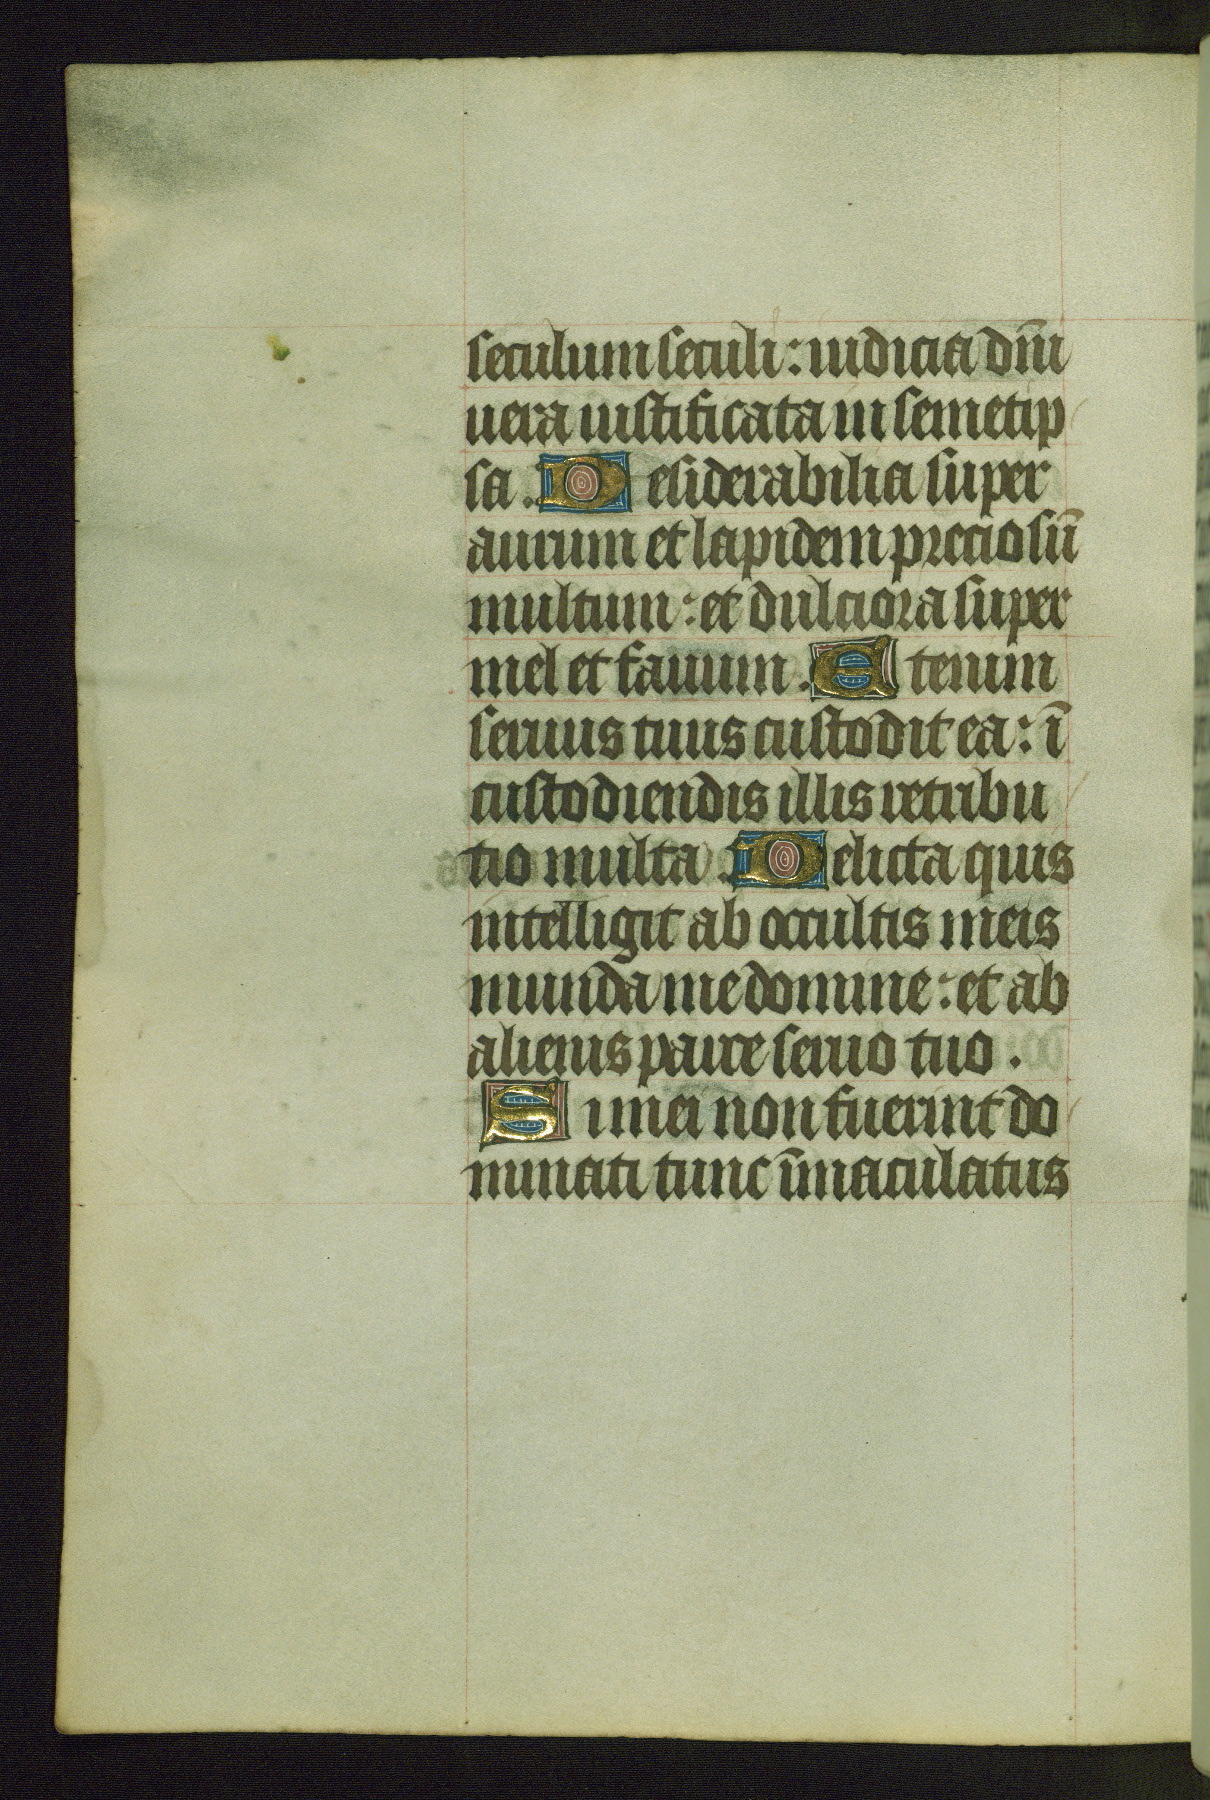 seculum seculi: iudicia dn̄i
uera iustificata in semetip
sa. Desiderabilia super
aurum et lapidem preciosū
multum: et dulciora super
mel et fauum. Etenim
seruus tuus custodit ea: ī
custodiendis illis retribu
tio multa. Delicta quis
intelligit ab occultis meis
munda me domine: et ab
alienis parce seruo tuo.
Si mei non fuerint do
minati tunc īmaculatus